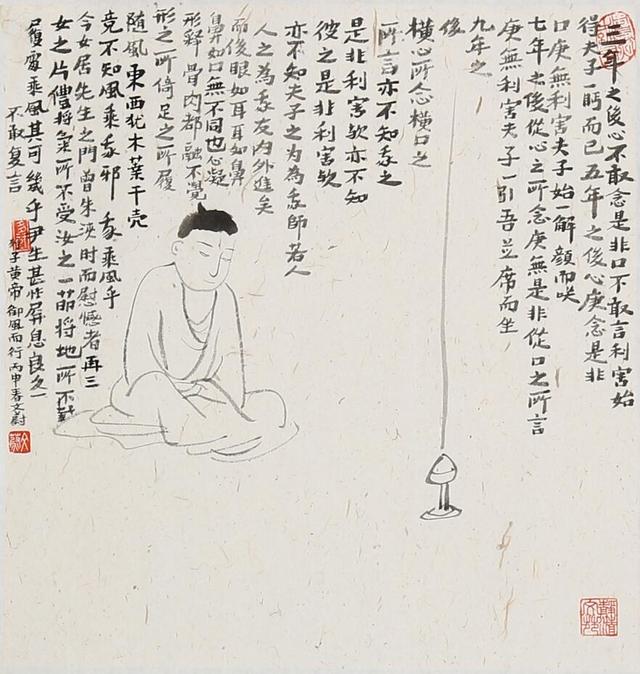 三年之後心不敢念是非口不敢言利害始
得夫子一眄而已五年之後心庚念是非
口庚無利害夫子始一解顏而咲
七年之後從心之所念庚無是非從口之所言
庚無利害夫子一引吾並席而坐
九年之
後
橫心所念橫口之
所言亦不知我之
是非利害歟亦不知
彼之是非利害歟
亦不知夫子之为為我師若人
人之為我友內外進矣
而後眼如耳耳如鼻
鼻如口無不同也心凝
形释骨肉都融不覺
形之所倚足之所履
随風東西犹木葉干壳
竟不知風乘我邪我乘風乎
今女居先生之門曾未浹时而慰憾者再三
女之片體将氣所不受汝之一節将地所不載
履虛乘風其可幾乎尹生甚怍屏息良久
不敢复言
列子黄帝御風而行丙申春文蔚